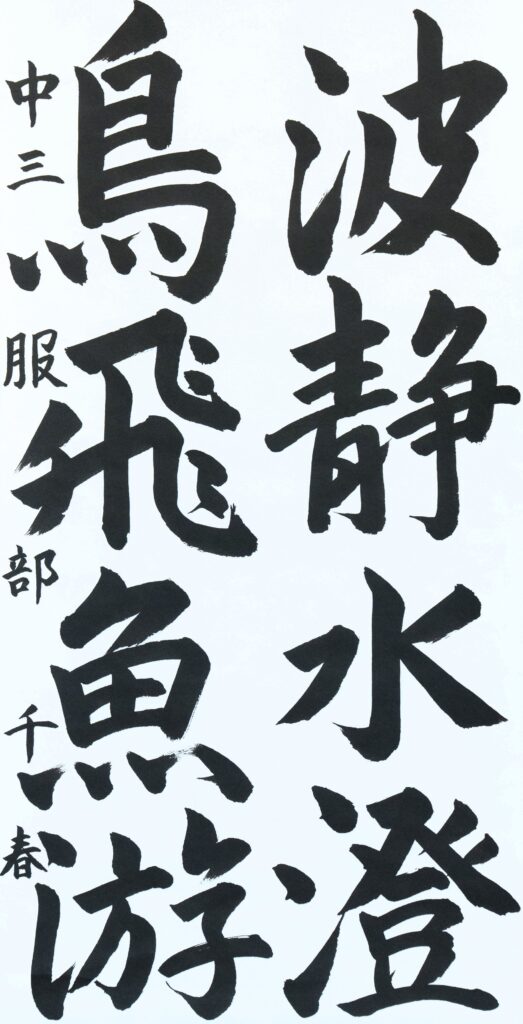 波静水澄
鳥飛魚游
中三 服部千春